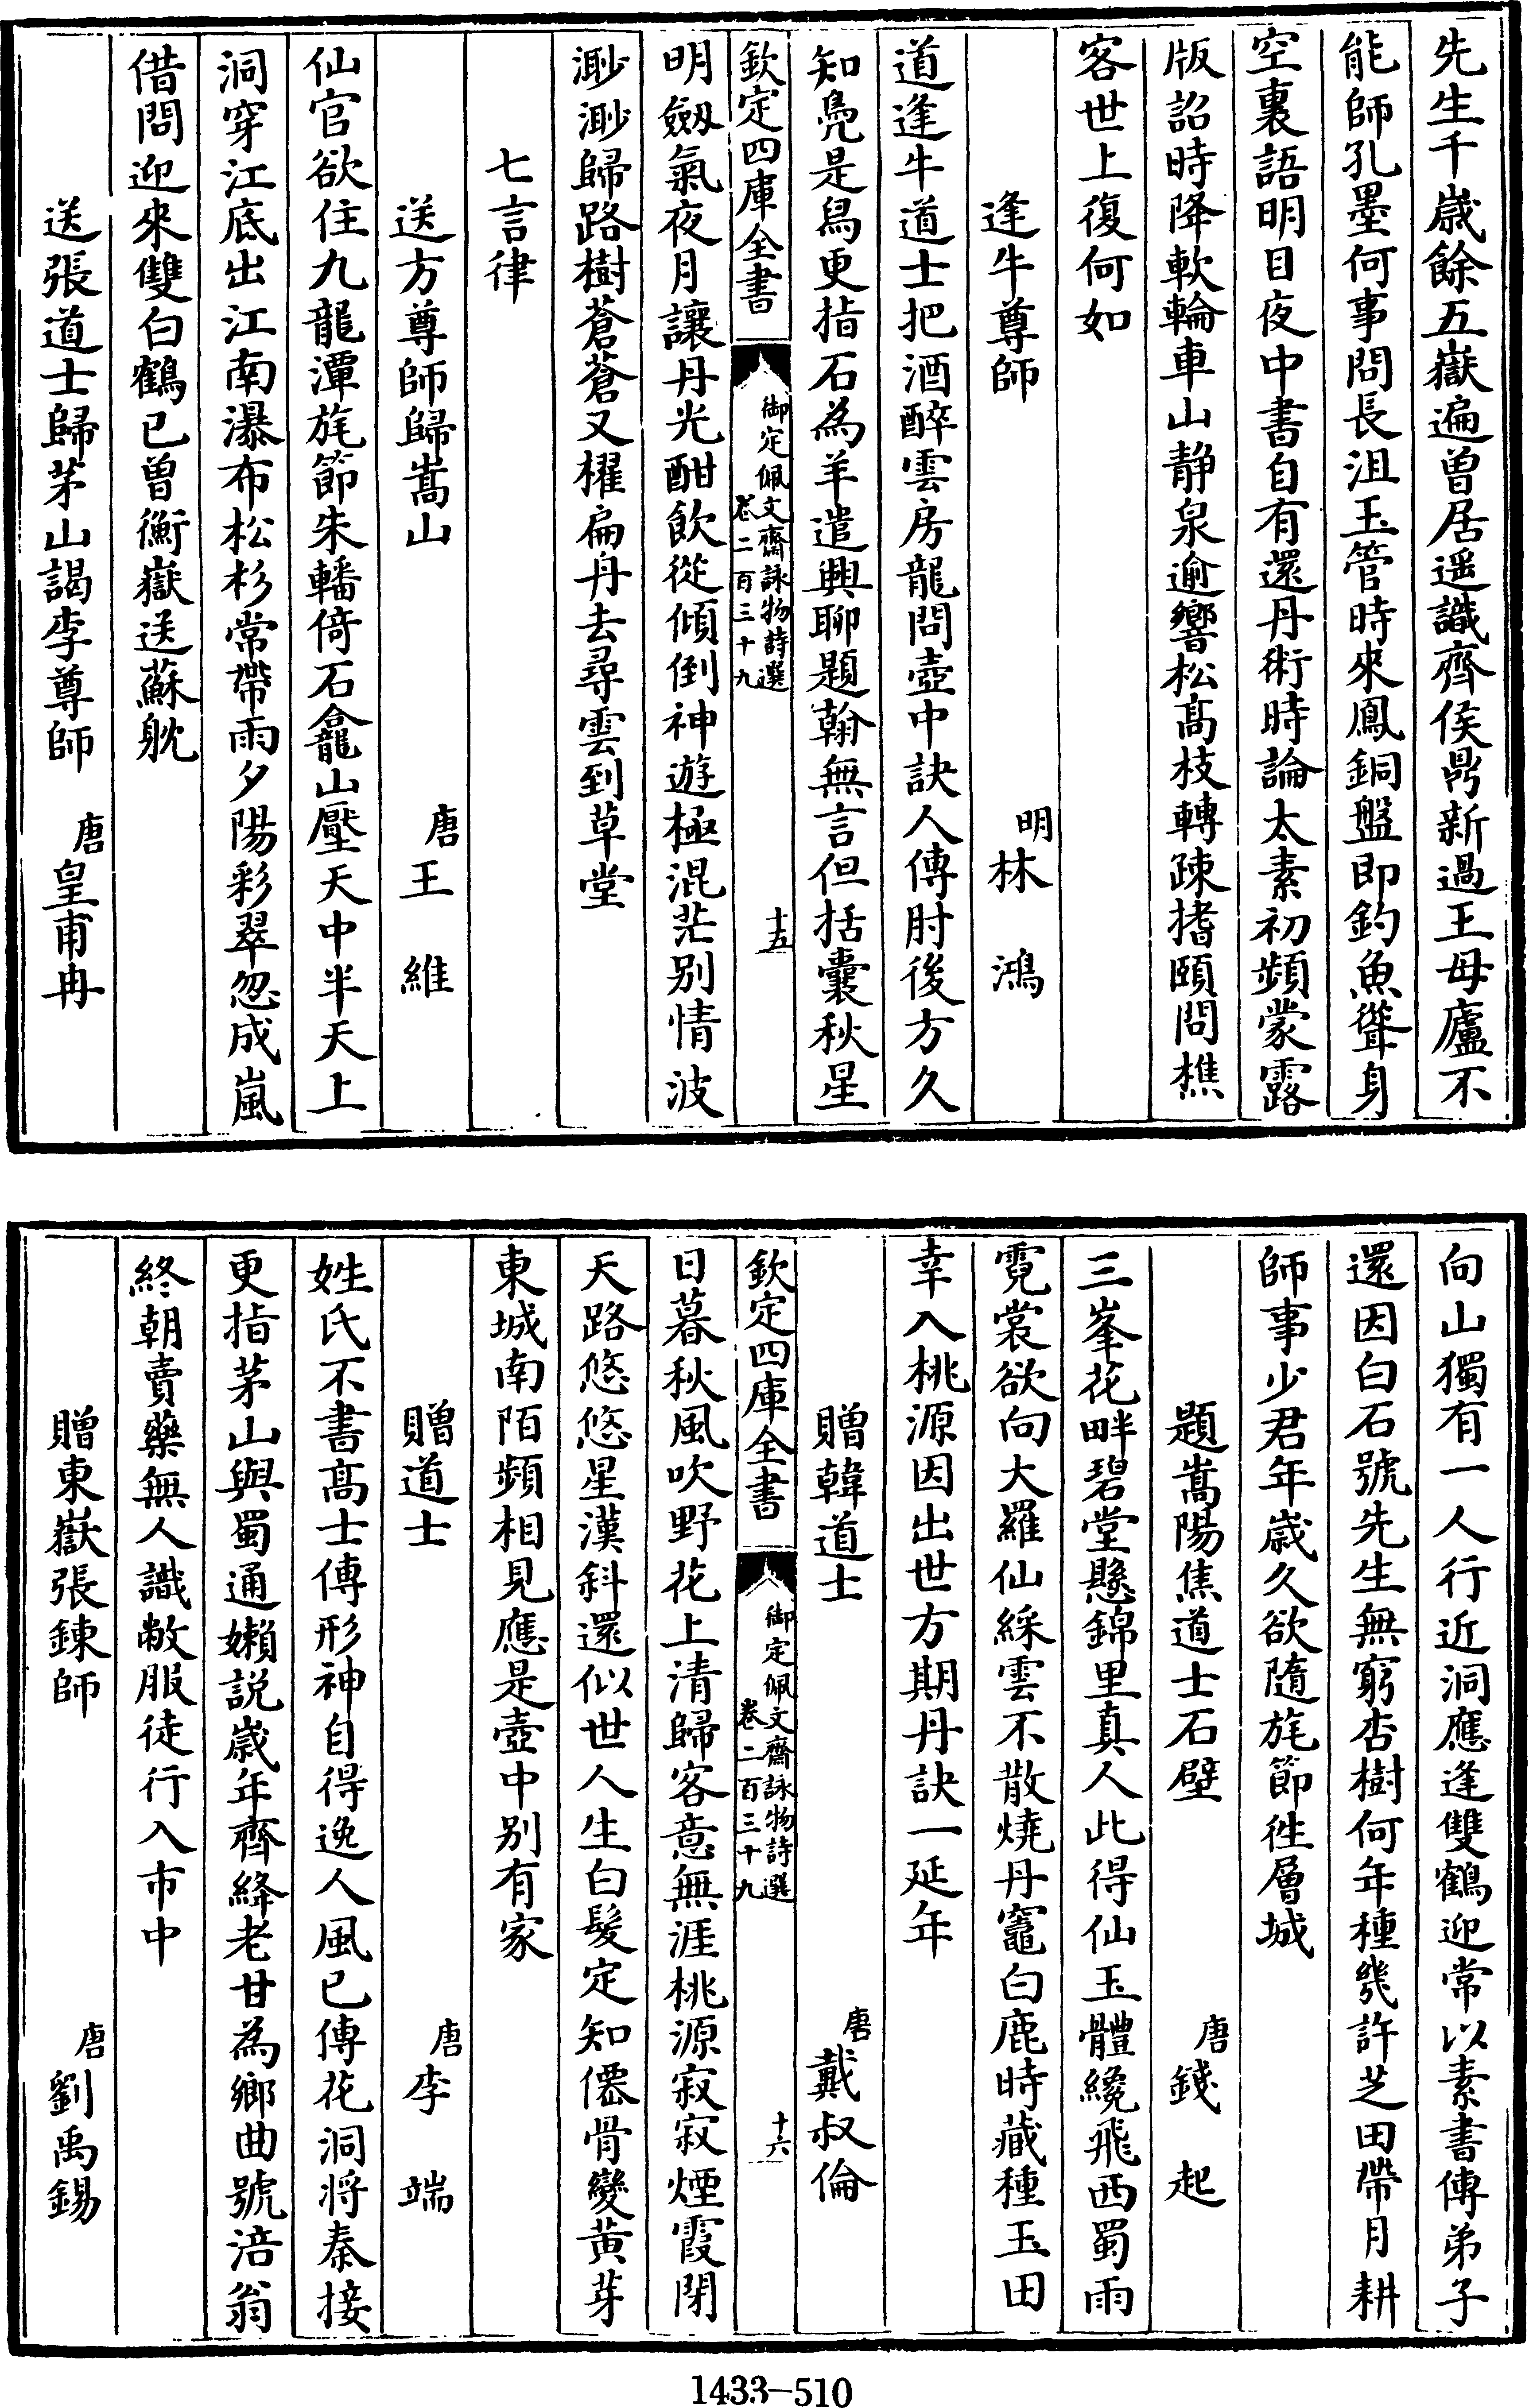 先生千歲餘五嶽遍曾居遥識齊侯鼎新過王母廬不
能師孔墨何事問長沮玉管時來鳳銅盤即釣魚聳身
空裏語明目夜中書自有還丹術時論太素初頻蒙露
版詔時降軟輪車山静泉逾響松髙枝轉疎搘頤問樵
客世上復何如
逢牛尊師　明林鴻
道逢牛道士把酒醉雲房龍問壺中訣人傳肘後方久
知鳧是舄更指石為羊遣興聊題翰無言但括囊秋星
欽定四庫全書　御定佩文齋詠物詩選　卷二百三十九　十五
明劔氣夜月讓丹光酣飲從傾倒神遊極混茫别情波
渺渺歸路樹蒼蒼又櫂扁舟去尋雲到草堂
七言律
送方尊師歸嵩山　唐王維
仙官欲住九龍潭旄節朱轓倚石龕山壓天中半天上
洞穿江底出江南瀑布松杉常帶雨夕陽彩翠忽成嵐
借問迎來雙白鶴已曾衡嶽送蘇躭
送張道士歸茅山謁李尊師　唐皇甫冉
向山獨有一人行近洞應逢雙鶴迎常以素書傳弟子
還因白石號先生無窮杏樹何年種幾許芝田帶月耕
師事少君年歲久欲隨旄節徃層城
題嵩陽焦道士石壁　唐錢起
三峯花畔碧堂懸錦里真人此得仙玉體纔飛西蜀雨
霓裳欲向大羅仙綵雲不散燒丹竈白鹿時藏種玉田
幸入桃源因出世方期丹訣一延年
贈韓道士　唐戴叔倫
欽定四庫全書　御定佩文齋詠物詩選　卷二百三十九　十六
日暮秋風吹野花上清歸客意無涯桃源寂寂煙霞閉
天路悠悠星漢斜還似世人生白髮定知僊骨變黄芽
東城南陌頻相見應是壺中别有家
贈道士　唐李端
姓氏不書髙士傳形神自得逸人風已傳花洞將秦接
更指茅山與蜀通嬾説歲年齊絳老甘為鄉曲號涪翁
終朝賣藥無人識敝服徒行入市中
贈東嶽張鍊師　唐劉禹錫
1433-510